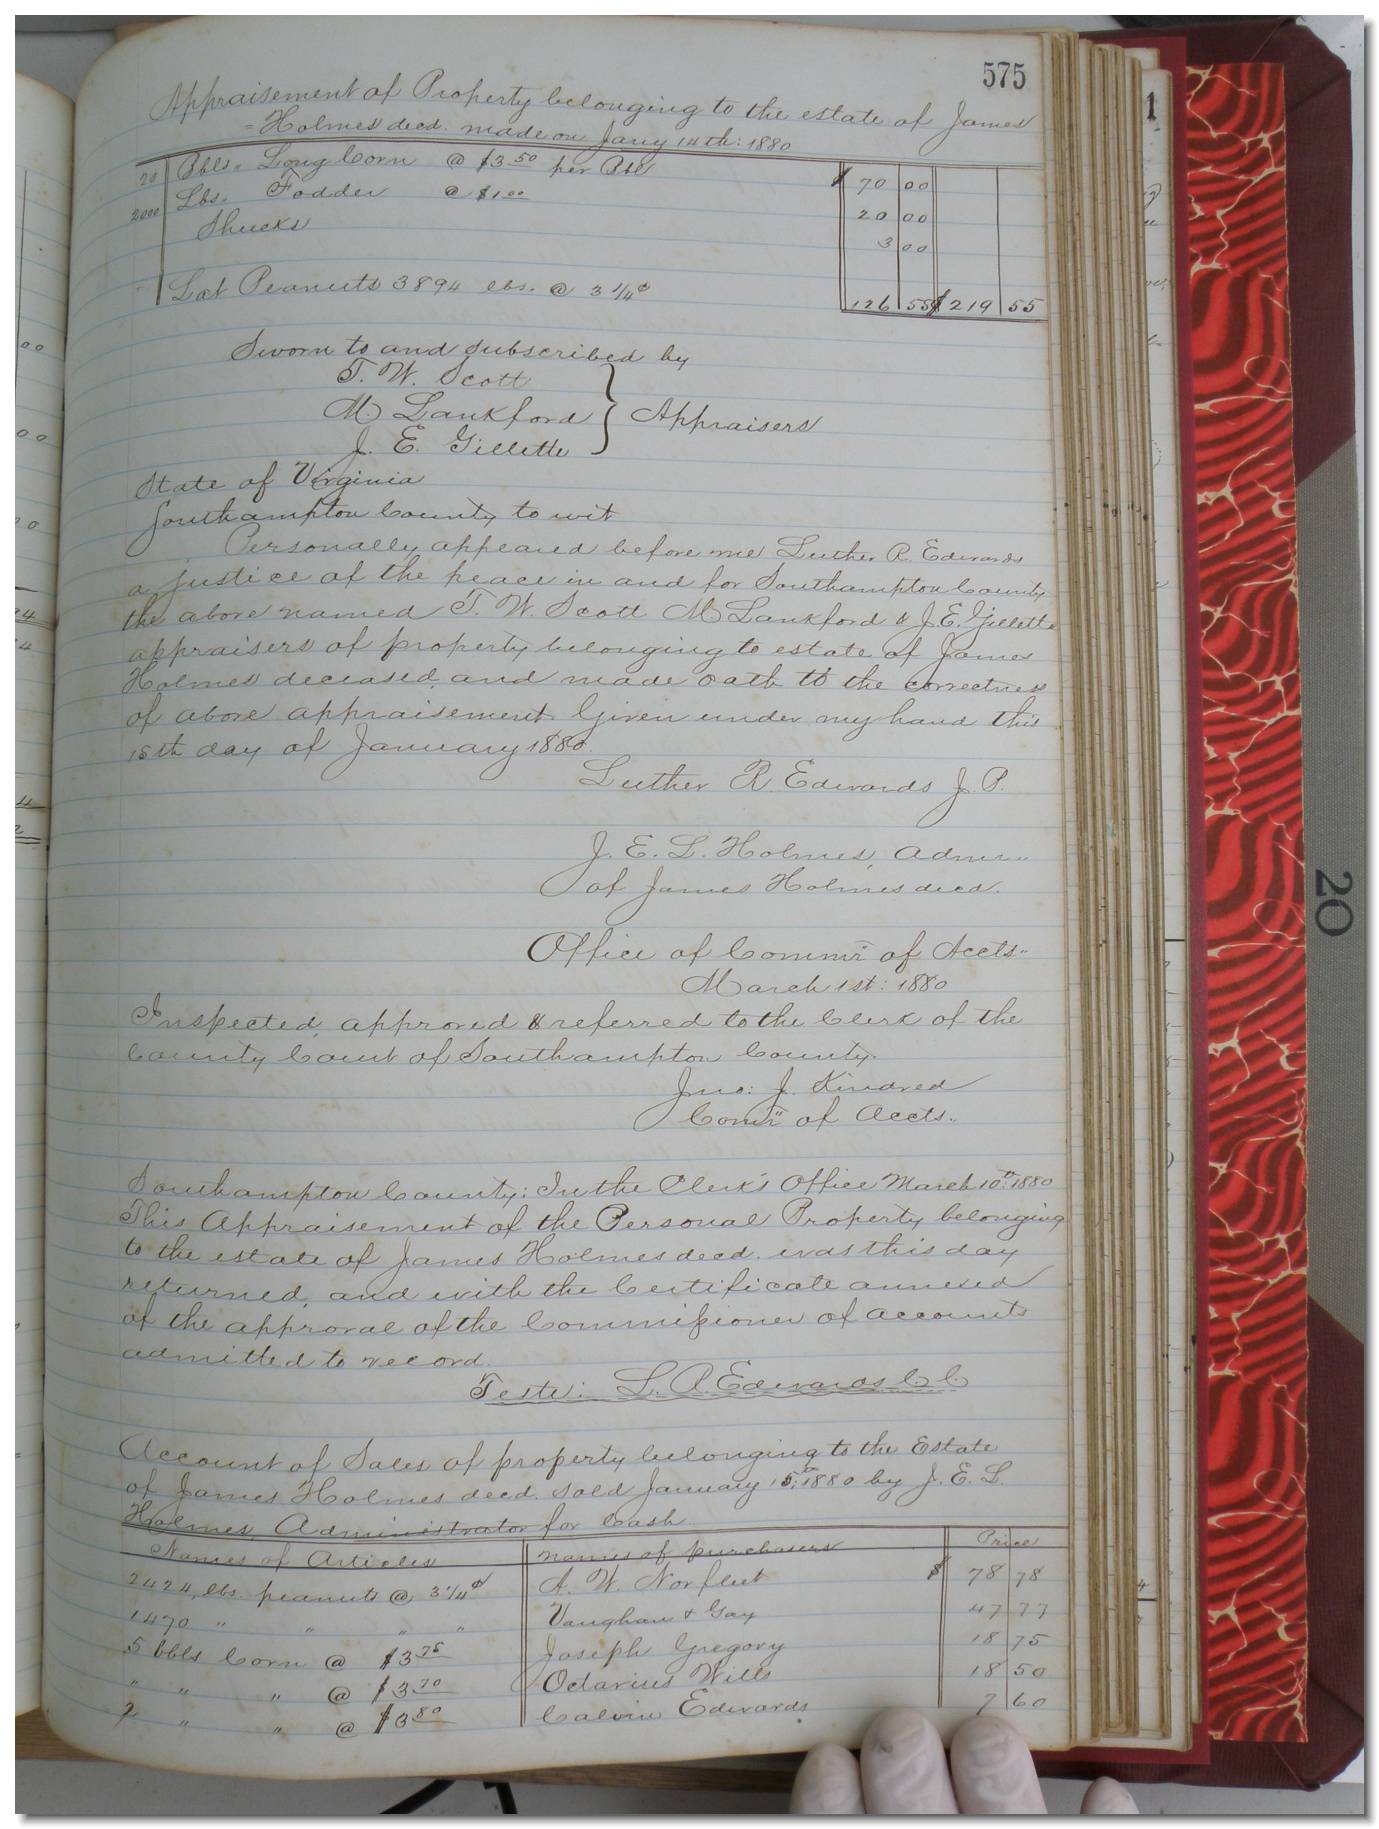 575
Appraisement of Property belonging to the estate of James
Holmes decd. made on Jany 14th: 1880
20 Bbls. Long Corn @ $3 50 per Bbl $ 70 00
2000 Lbs. Fodder @ $1 00 20 00
Shucks 3 00
Lot Peanuts 3894 lbs. @ 3 1/4 ¢ 126 55 $219 55
Sworn to and subscribed by
T. W. Scott
M Lankford } Appraisers
J. E. Gillette
State of Virginia
Southampton County to wit
Personally appeared before me Luther R. Edwards
a justice of the peace in and for Southampton County
the above named T. W. Scott M Lankford & J. E. Gillette
appraisers of property belonging to estate of James
Holmes deceased and made oath to the correctness
of above appraisement Given under my hand this
15th day of January 1880.
Luther R. Edwards J. P.
J. E. L. Holmes, Admr
of James Holmes decd.
Office of Commr of Accts
March 1st: 1880
Inspected, approved & referred to the Clerk of the
County Court of Southampton County.
Jno: J. Kindred
Comr of Accts.
Southampton County: In the Clerk's Office March 10th: 1880
This Appraisement of the Personal Property belonging
to the estate of James Holmes decd. was this day
returned, and with the Certificate annexed
of the approval of the Commissioner of accounts
admitted to record.
Teste: L. R. Edwards C. C.
Account of Sales of property belonging to the Estate
of James Holmes decd. sold January 15th, 1880 by J. E. L
Holmes, Administrator for Cash
Names of Articles names of purchasers Price
2424 lbs. peanuts @ 3 1/4 ¢ A. W. Norfleet $ 78 78
1470 " " " " Vaughan & Gay 47 77
5 bbls Corn @ $3 75 Joseph Gregory 18 75
" " " @ $3 70 Octavius Wills 18 50
2 " " @ $3 80 Calvin Edwards 7 60
20
1